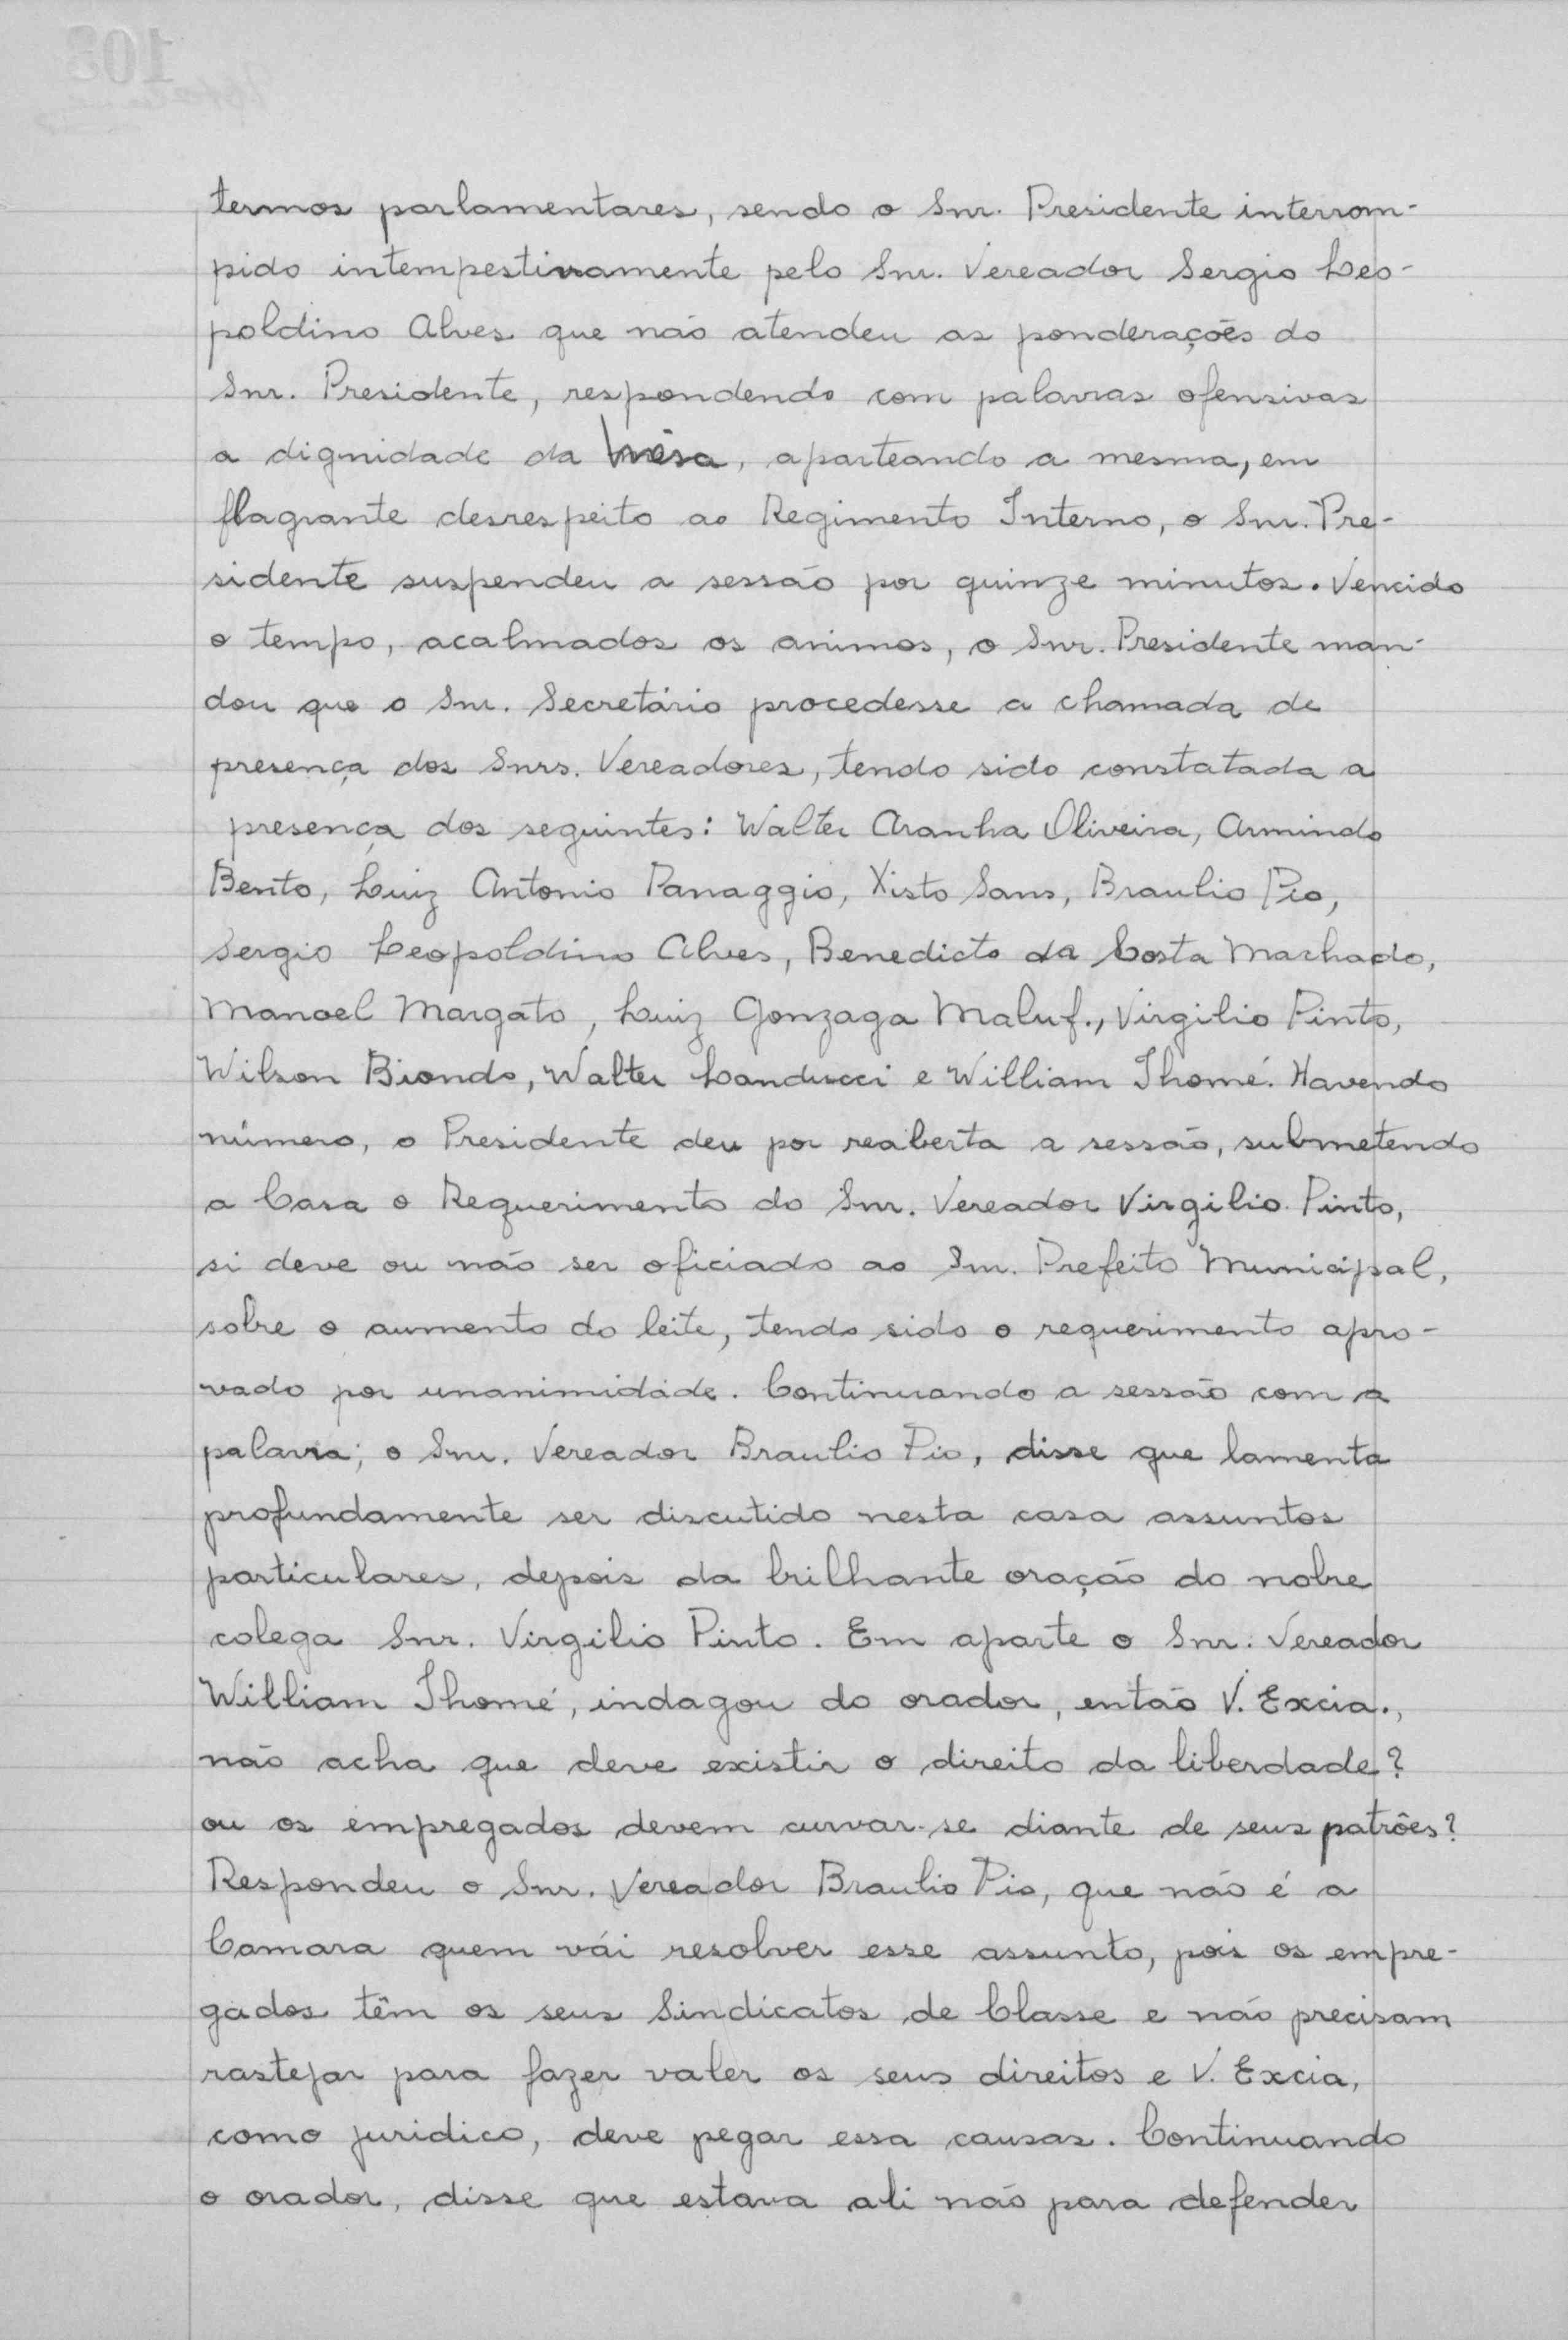 termos parlamentares, sendo o Snr. Presidente interrom-
pido intempestivamente pelo Snr. Vereador Sergio Leo-
poldino Alves que não atendeu as ponderações do
Snr. Presidente, respondendo com palavras ofensivas
a dignidade da Mêsa, aparteando a mesma, em
flagrante desrespeito ao Regimento Interno, o Snr. Pre-
sidente suspendeu a sessão por quinze minutos. Vencido
o tempo, acalmados os animos, o Snr. Presidente man-
dou que o Snr. Secretário procedesse a chamada de
presença dos Snrs. Vereadores, tendo sido constatada a
presença dos seguintes: Walter Aranha Oliveira, Armindo
Bento, Luiz Antonio Panaggio, Xisto Sans, Braulio Pio,
Sergio Leopoldino Alves, Benedicto da Costa Machado,
Manoel Margato, Luiz Gonzaga Maluf., Virgilio Pinto,
Wilson Biondo, Walter Landucci e William Thomé. Havendo
número, o Presidente deu por reaberta a sessão, submetendo
a Casa o Requerimento do Snr. Vereador Virgilio Pinto,
si deve ou não ser oficiado ao Snr. Prefeito Municipal,
sobre o aumento do leite, tendo sido o requerimento apro-
vado por unanimidade. Continuando a sessão com a
palavra; o Snr. Vereador Braulio Pio, disse que lamenta
profundamente ser discutido nesta casa assuntos
particulares, depois da brilhante oração do nobre
colega Snr. Virgilio Pinto. Em aparte o Snr. Vereador
William Thomé, indagou do orador, então V. Excia.,
não acha que deve existir o direito da liberdade?
ou os empregados devem curvar-se diante de seus patrões?
Respondeu o Snr. Vereador Braulio Pio, que não é a
Camara quem vái resolver esse assunto, pois os empre-
gados têm os seus Sindicatos de Classe e não precisam
rastejar para fazer valer os seus direitos e V. Excia,
como juridico, deve pegar essa causas. Continuando
o orador, disse que estava ali não para defender